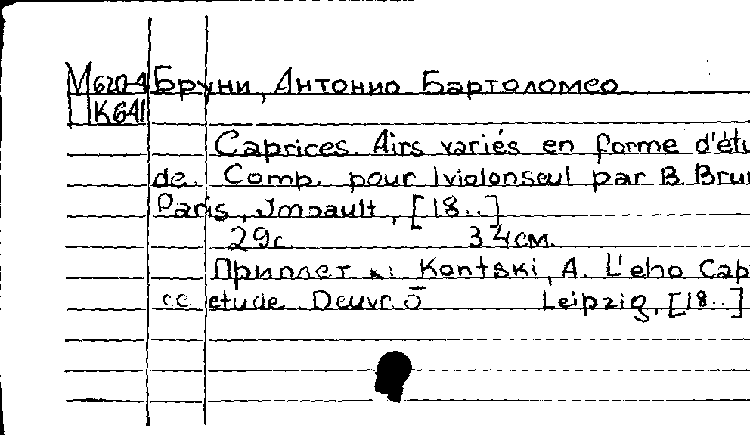 М620-4 Бруни, Антонио Бартоломео
К641
Caprices. Airs variés en forme d'étu
de. Comp. pour 1 violon seul par B. Brun
Paris, Imbault, [18..]
29с 34см.
Приплет к: Kontski, A. L'eho Cap
ce etude Oeuvr. 5 Leipzig, [18..]